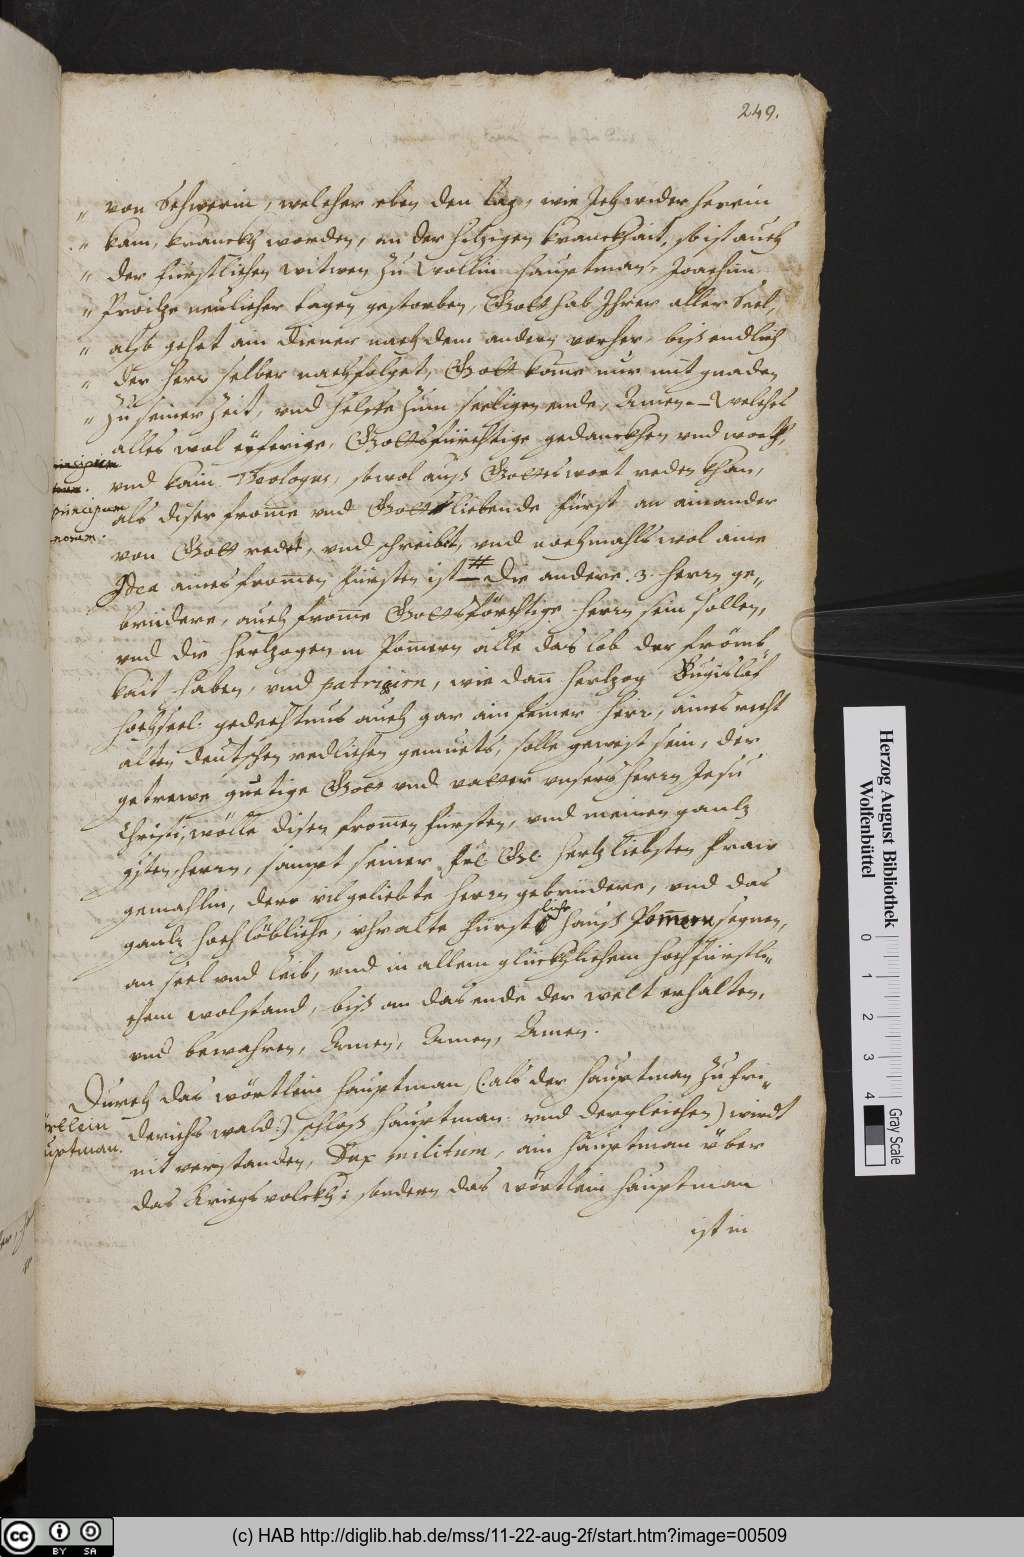 249.
„ von Schwerin, welcher eben den tag, wie Ich wider herein
„ kam, kranckh worden, an der hitzigen kranckhait, so ist auch
„ der fürstlichen witwen zu Wollin hauptman, Joachim
„ neulicher tagen gestorben, Gott hab Ihrer aller Seel,
„ also gehet ain diener nach dem andern vorher, biß endlich
„ der herr selber nachfolget, Gott kome nur mit gnaden
„ zu seiner Zeit, vnd helffe zum seeligen ende, Amen. – Welches
alles wol eyferige, Gottsfürchtige gedanckhen vnd wortt,
vnd kain Theologus, sowol auß Gottes wort reden khan,
principum
als diser frome vnd Gottsliebende fürst an ainander
von Gott redet, vnd schreibet, vnd nochmahls wol aine
Idea aines frommen fürsten ist # die andere .3. herrn ge„
brüdere, auch frome Gottsförchtige herrn sein sollen,
vnd die hertzogen in Pomern alle das lob der frömb„
kait haben, vnd patrisirn, wie dan hertzog Bugislaf
hochseel: gedechtnus auch gar ain feiner herr, aines recht
alten deutschen redlichen gemuets, solle gewest sein, der
getrewe guetige Gott vnd vatter vnsers herrn Jesu
Christi, wölle disen fromen fürsten, vnd meinen gantz
gsten. herrn, sampt seiner hertzliebsten fraw
gemahlin, dero vilgeliebte herrn gebrüdere, vnd das
gantz hochlöbliche, vhralte fürstliche hauß Pomern segnen,
an seel vnd leib, vnd in allem glückhlichem hochfürstli„
chem wolstand, biß an das ende der welt erhalten,
vnd bewahren, Amen, Amen, Amen.
Durch das wörtlein hauptman, (: als der hauptman zu Fri„
derichswald :) schloß hauptman: vnd dergleichen) wirdt
nit verstanden, Dux militum, ain hauptman über
das Kriegsvolckh: sondern das wörtlein hauptman
ist in
Herzog August Bibliothek
Wolfenbüttel
0 1 2 3 4
Gray Scale
cc BY SA
(c) HAB http://diglib.hab.de/mss/11-22-aug-2f/start.htm?image=00509